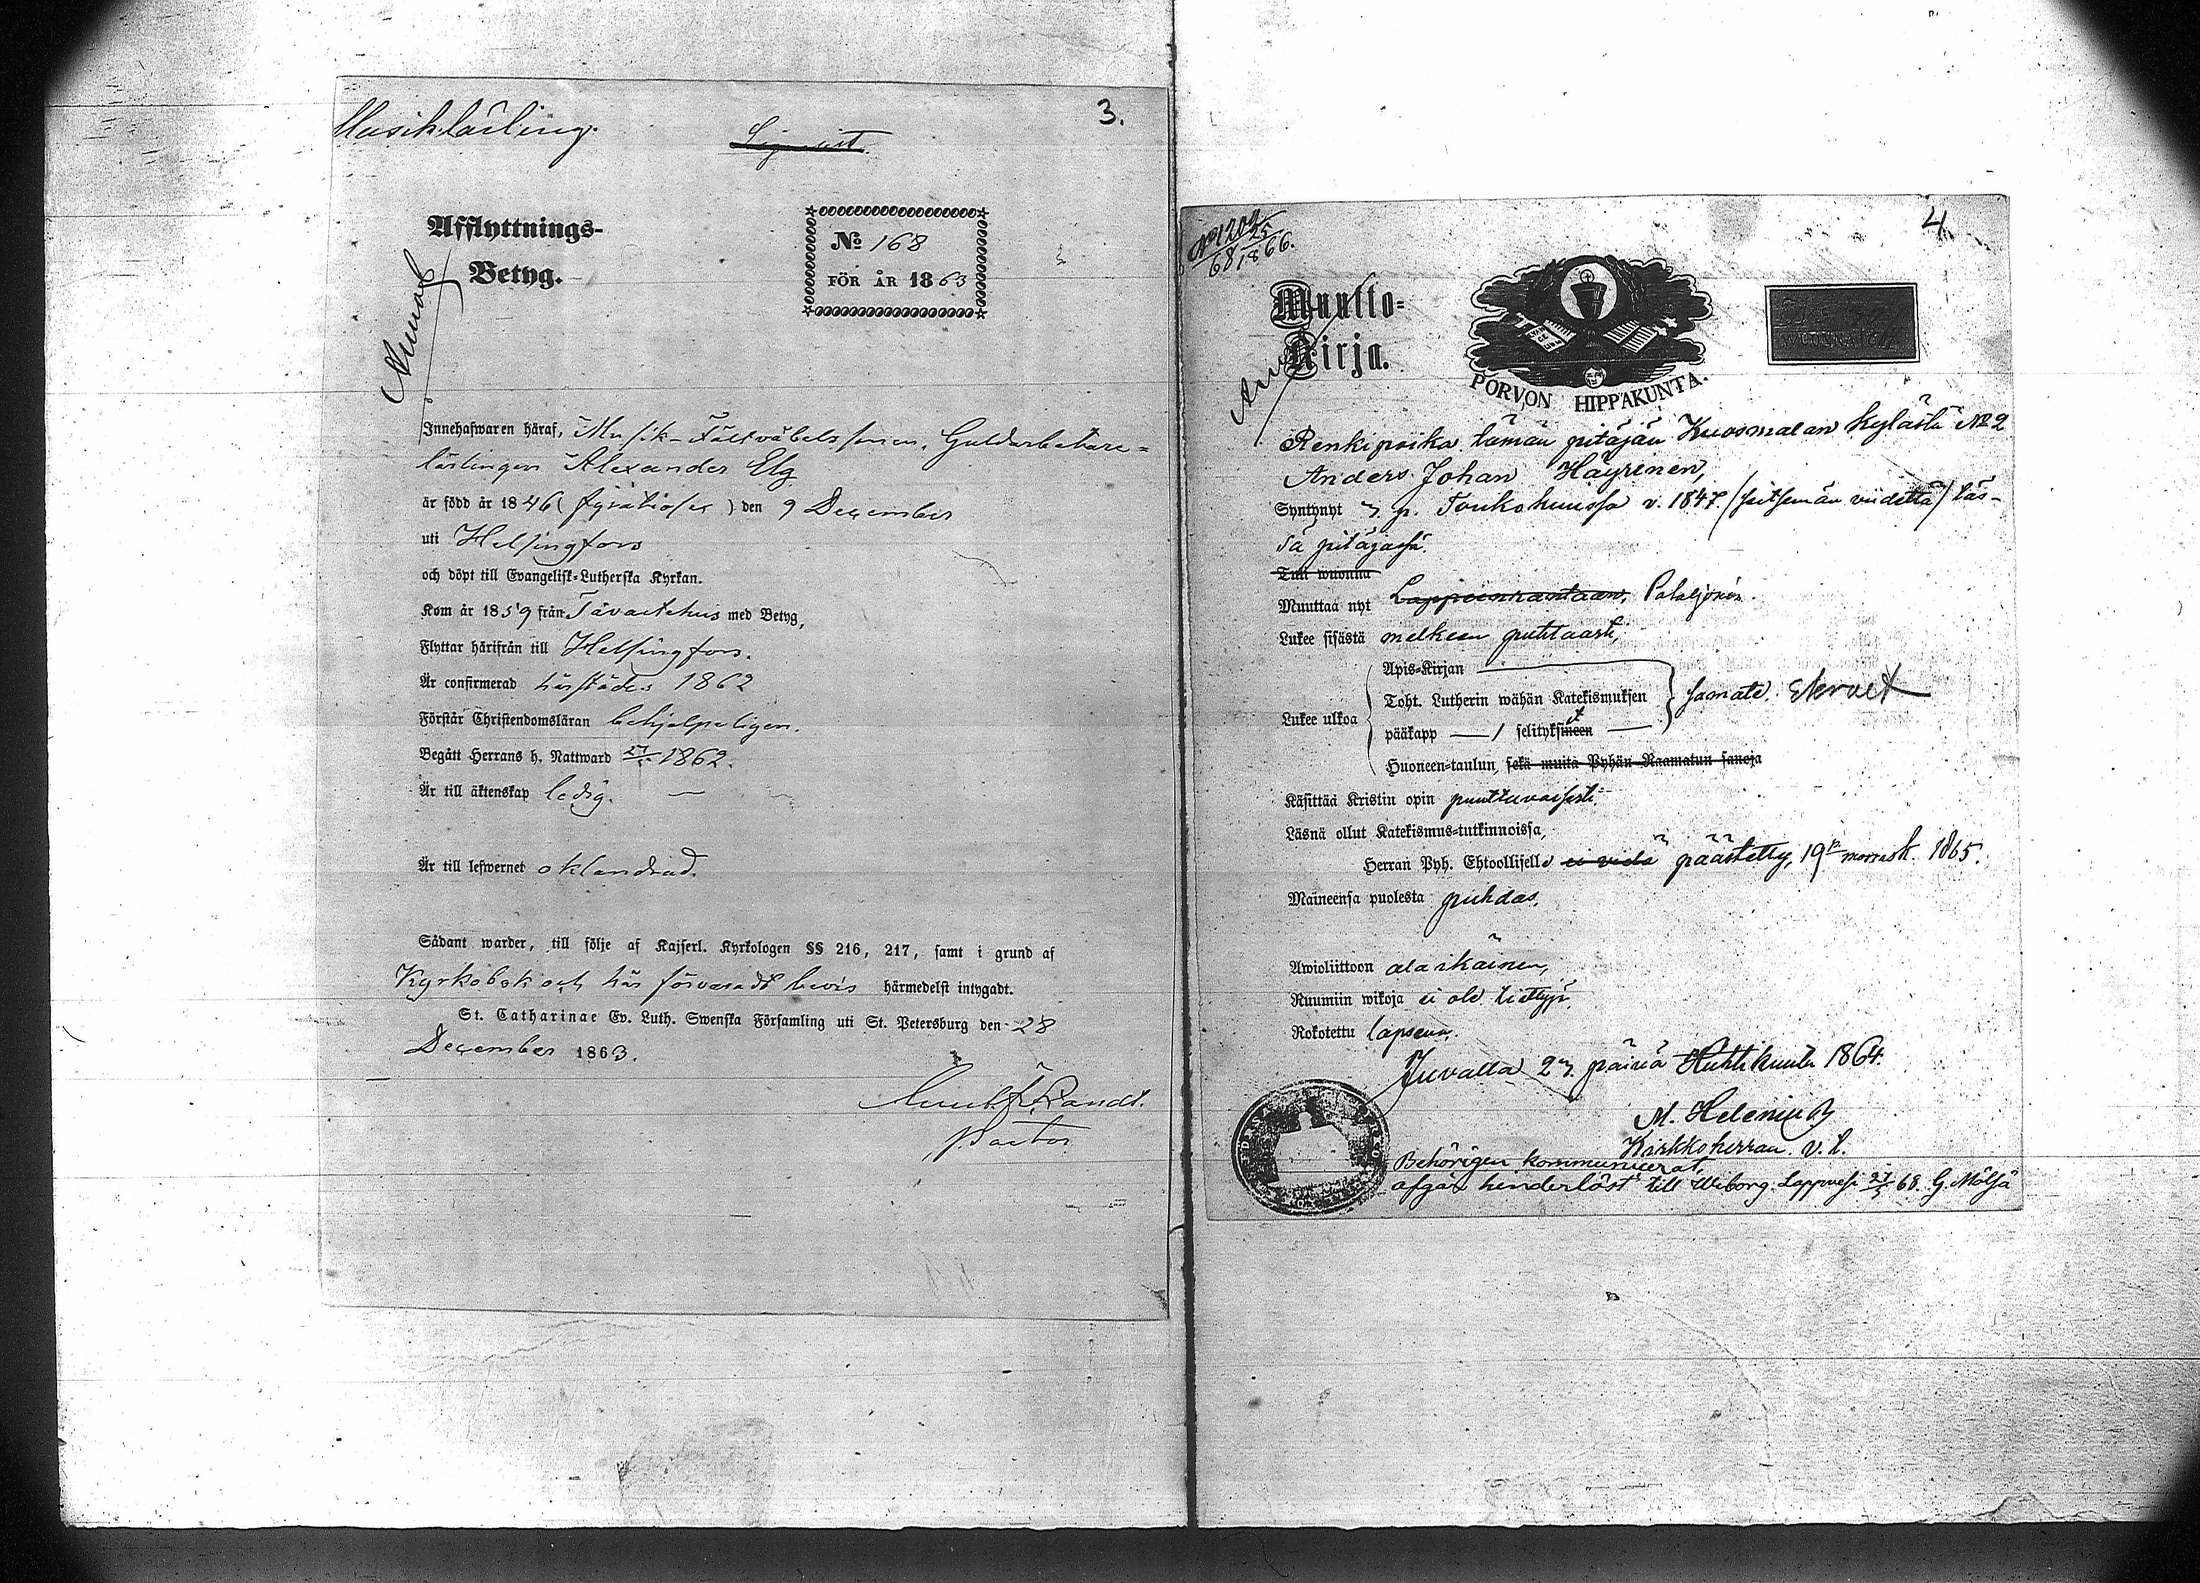 Musiklärling.
3.
Afflyttnings-
Betyg.
No 168
FÖR ÅR 1863
Innehafwaren häraf, Musik-Fältväbels sonen, Guldarbetare-
lärlingen Alexander Elg
är född år 1846 (fyratiosex) den 9 December
uti Helsingfors
och döpt till Evangelisk-Lutherska Kyrkan.
Kom år 1859 från Tavastehus med Betyg,
Flyttar härifrån till Helsingfors.
Är confirmerad härstädes 1862
Förstår Christendomsläran behjelpeligen.
Begått Herrans h. Nattward 1862.
Är till äktenskap ledig.
Är till lefwernet oklandrad.
Sådant warder, till följe af Kajserl. Kyrkologen §§ 216, 217, samt i grund af
Kyrkobok och här förvaradt bevis härmedelst intygadt.
St. Catharinae Ev. Luth. Swenska Församling uti St. Petersburg den 28
December 1863.
Pastor
4.
Muutto-
Kirja.
PORVON HIPPAKUNTA.
Renkipoika tämän pitäjän Kuosmalan kylästä No 2
Anders Johan Häyrinen,
Syntynyt 7 p. Toukokuussa v. 1847 (seitsemän viidettä) täs-
sä pitäjässä.
Tuli wuonna
Muuttaa nyt Lappeenrantaan, Pataljonin.
Lukee sisästä melkeen puhtaasti,
Lukee ulkoa
Apis-Kirjan
Toht. Lutherin wähän Katekismuksen
pääkapp / selityksineen
Huoneen-taulun, sekä muita Pyhän Raamatun sanoja
samate.
Käsittää Kristin opin puuttuvaisesti
Läsnä ollut Katekismus-tutkinnoissa,
Herran Pyh. Ehtoollisella ei vielä päästetty, 19 marrask. 1865.
Maineensa puolesta puhdas,
Awioliittoon alaikäinen,
Ruumiin wikoja ei ole tiettyjä
Rokotettu lapsena.
Juvalla 27. päivä Huhtikuuta 1864.
M. Helenius
Kirkkoherran v. t.
Behörigen kommunicerat,
afgår hinderlöst till Wiborg. Lappvesi 27/3 68. G. Mölsä